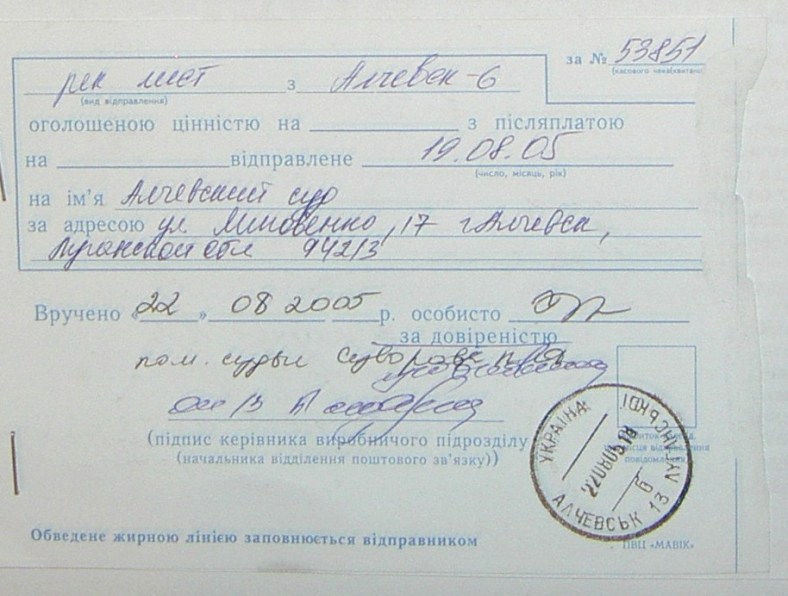 за № 53851
(касового чека(квитанц
рек лист з Алчевск-6
(вид відправлення)
оголошеною цінністю на з післяплатою
на відправлене 19.08.05
(число, місяць, рік)
на ім'я Алчевский суд
за адресою ул Миновенко, 17 г Алчевск,
Луганской обл 94213
Вручено «22» 08 2005 р. особисто
за довіреністю
пом. судьи
(підпис керівника виробничого підрозділу
(начальника відділення поштового зв'язку))
УКРАЇНА ЛУГАНСЬКОЇ
220805 18
АЛЧЕВСЬК 13
Обведене жирною лінією заповнюється відправником
ПВЦ «МАВІК»